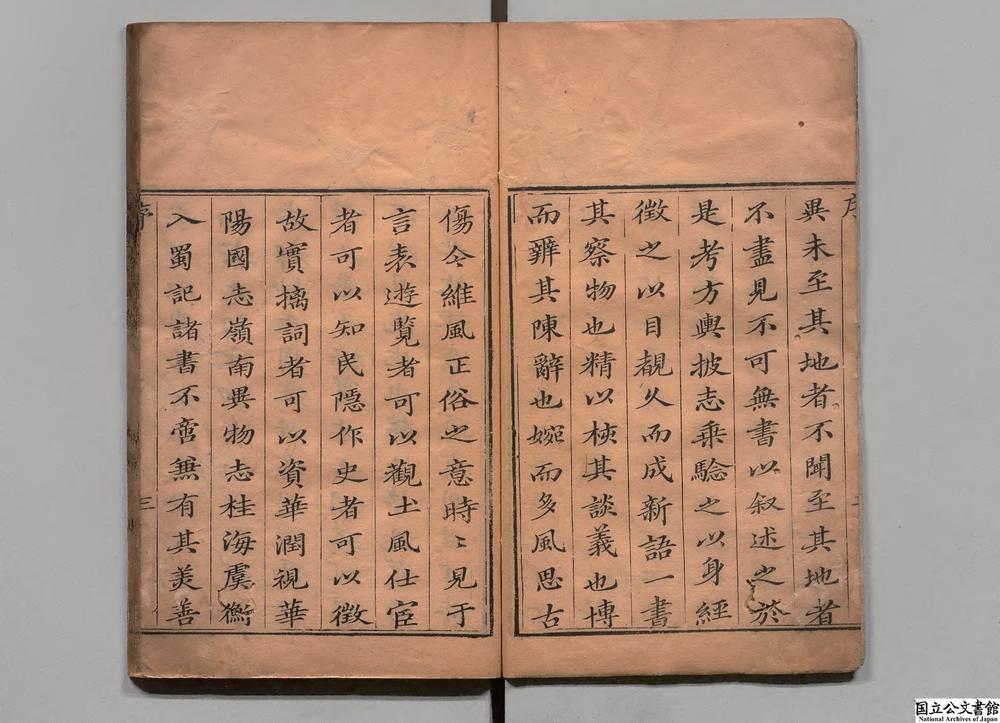 異未至其地者不聞至其地者
不盡見不可無書以叙述之於
是考方輿披志乗驗之以身經
徵之以目覩久而成新語一書
其察物也精以核其談義也博
而辨其陳辭也婉而多風思古
傷今維風正俗之意時〻見于
言表遊覽者可以觀土風仕宦
者可以知民隱作史者可以徵
故實摛詞者可以資華潤視華
陽國志嶺南異物志桂海虞衡
入蜀記諸書不啻無有其美善
序
三
国立公文書館
National Archives of Japan